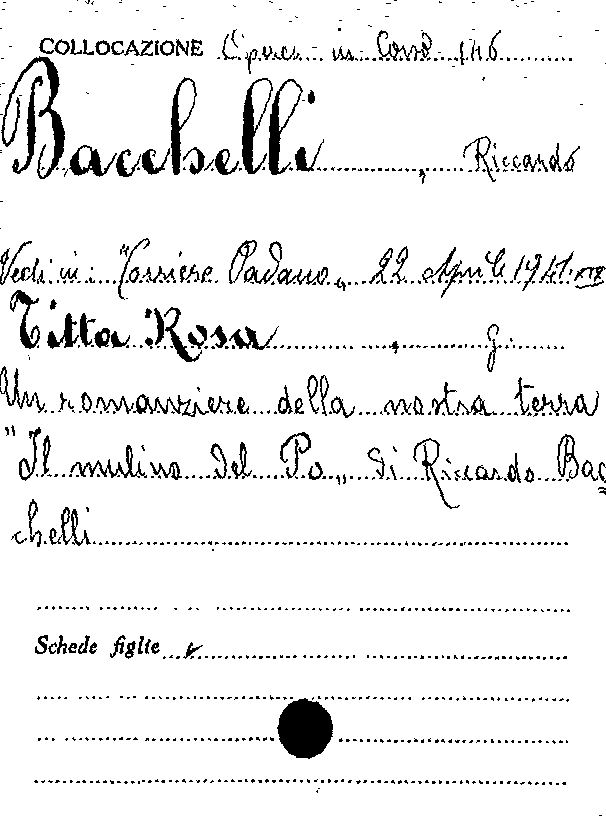 COLLOCAZIONE Opera in Corso 146
Bacchelli, Riccardo
Vedi in: "Corriere Padano„ 22 Aprile 1941.XIX
Titta Rosa, G.
Un romanziere della nostra terra
"Il mulino del Po„ di Riccardo Bac
chelli
Schede figlie